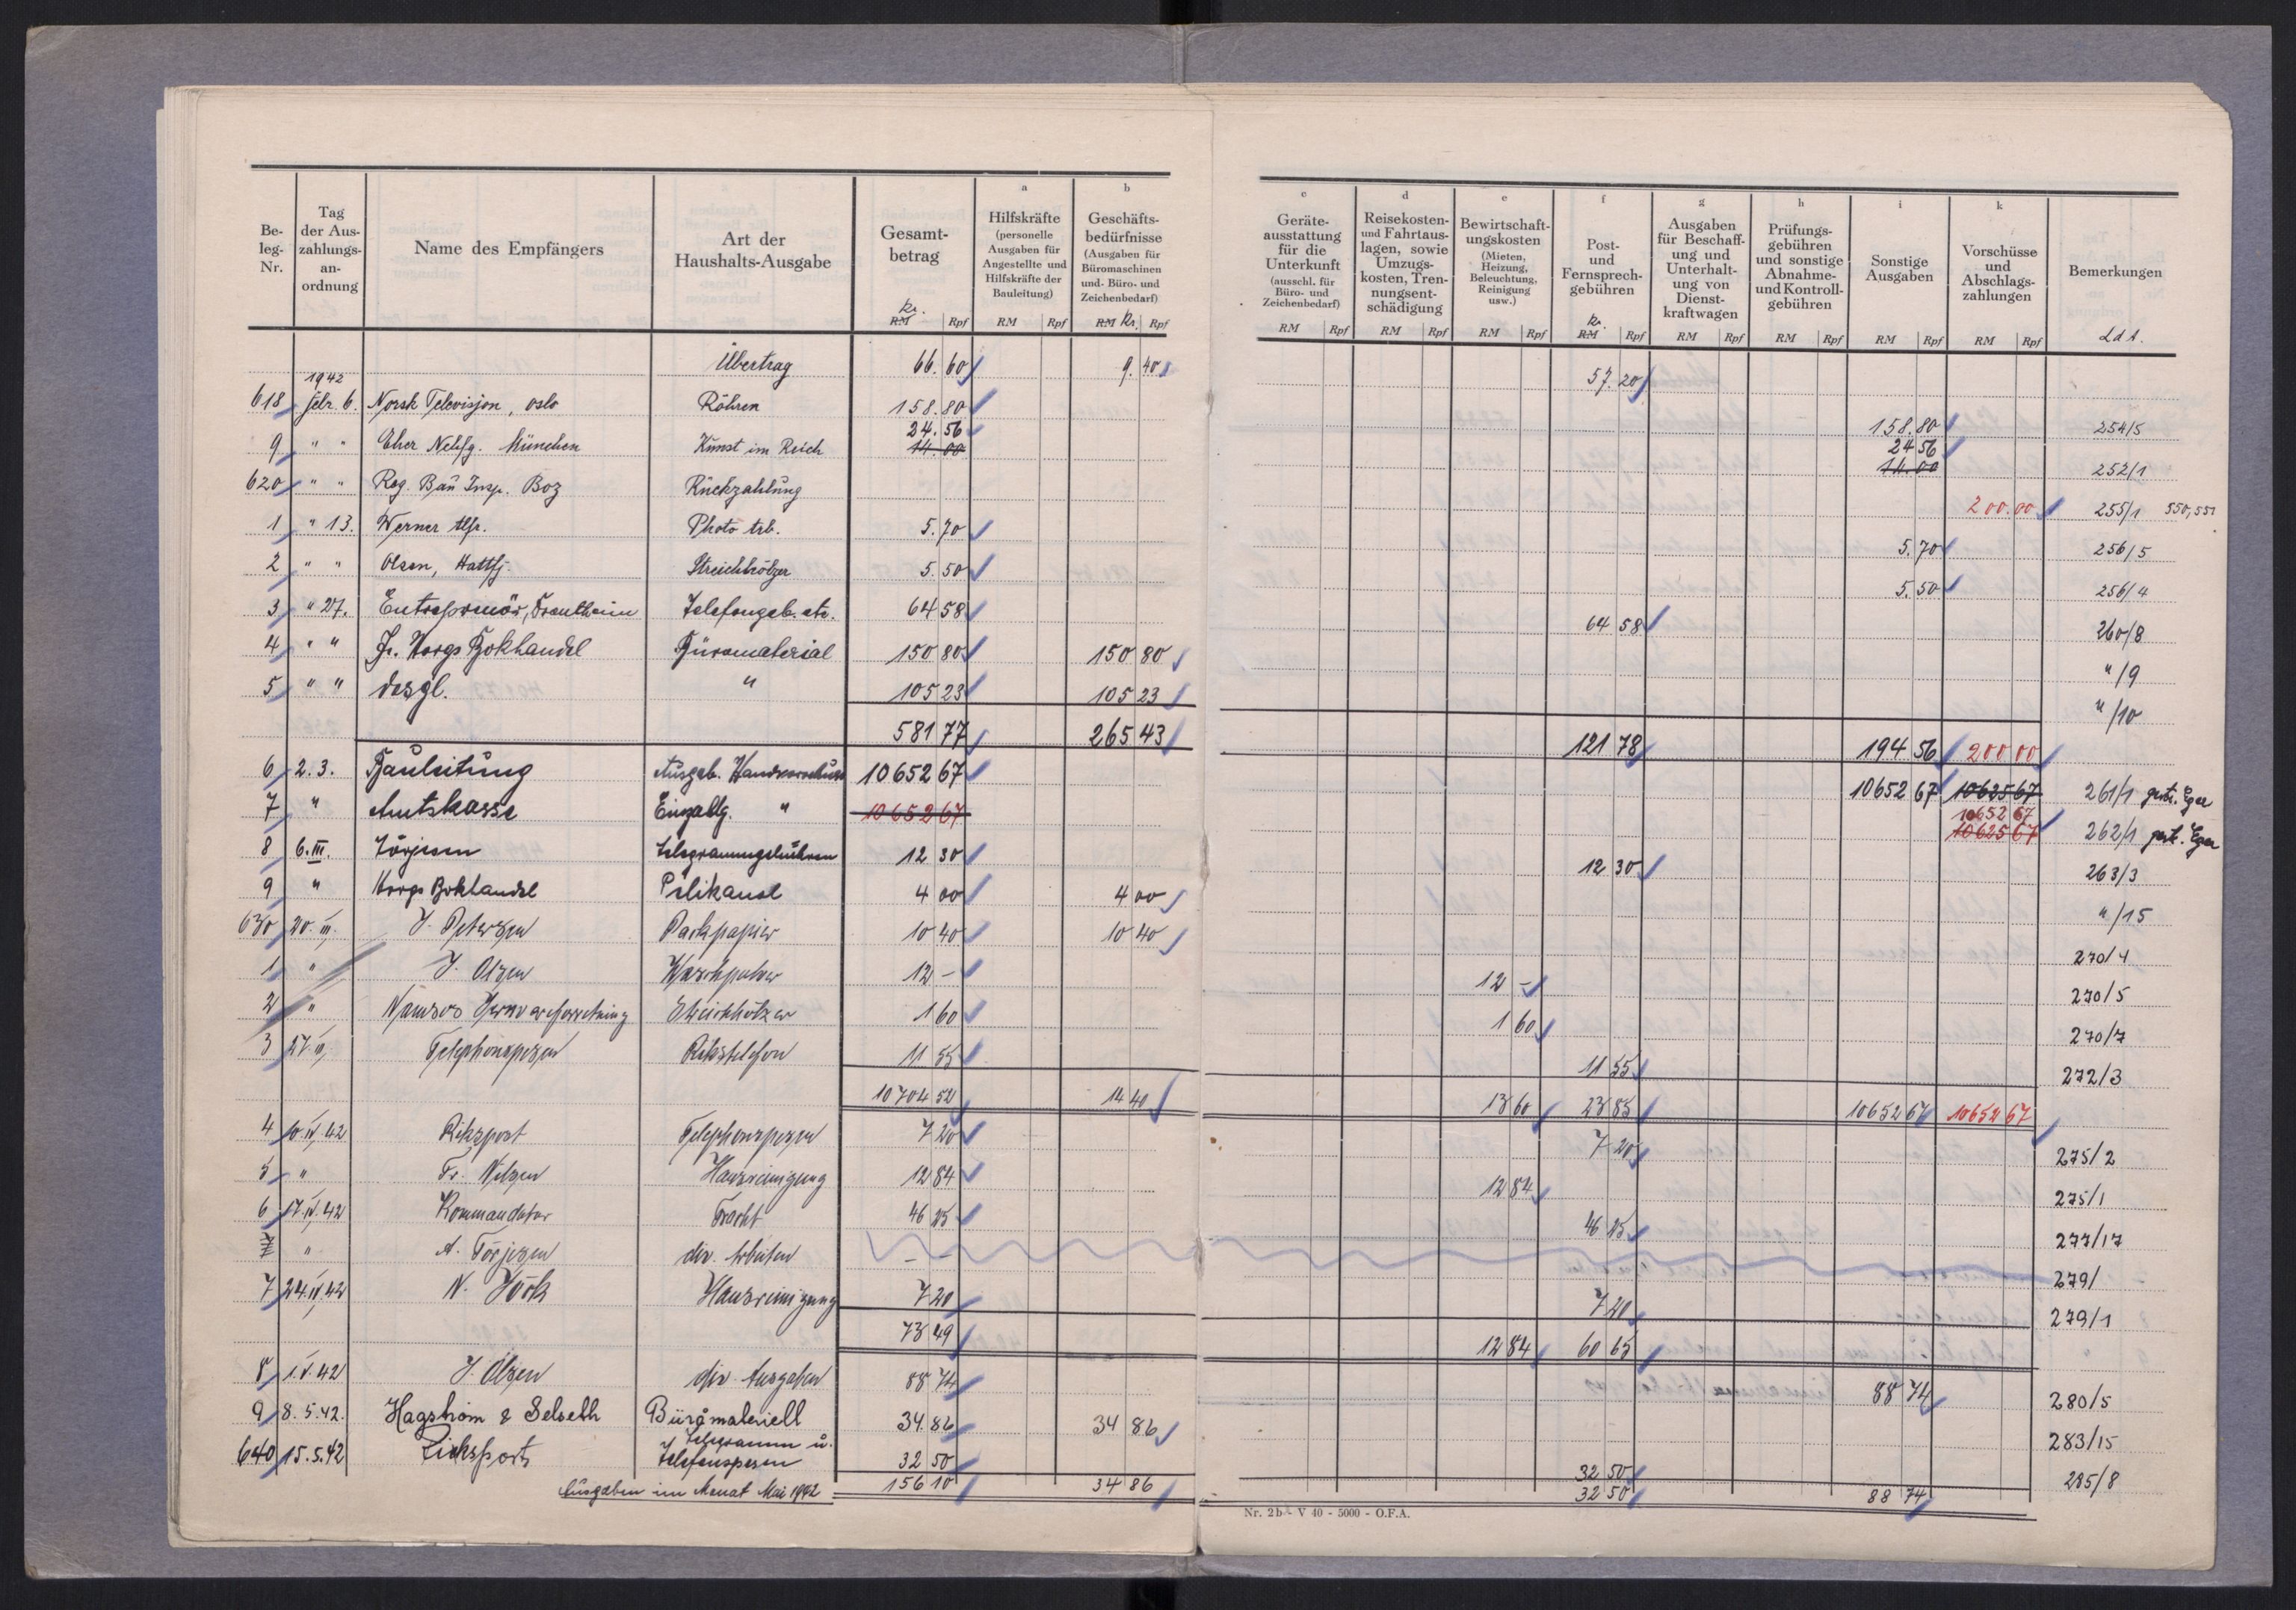 Be-leg-Nr. | Tag der Aus-zahlungs-an-ordnung | Name des Empfängers | Art der Haushalts-Ausgabe | Gesamt-betrag Kr. RM Rpf | a Hilfskräfte (personelle Ausgaben für Angestellte und Hilfskräfte der Bauleitung) RM Rpf | b Geschäfts-bedürfnisse (Ausgaben für Büromaschinen und- Büro- und Zeichenbedarf) RM Kr. Rpf | c Geräte-ausstattung für die Unterkunft (ausschl. für Büro- und Zeichenbedarf) RM Rpf | d Reisekosten- und Fahrtaus-lagen, sowie Umzugs-kosten, Tren-nungsent-schädigung RM Rpf | e Bewirtschaft-ungskosten (Mieten, Heizung, Beleuchtung, Reinigung usw.) RM Rpf | f Post- und Fernsprech-gebühren Kr. RM Rpf | g Ausgaben für Beschaff-ung und Unterhalt-ung von Dienst-kraftwagen RM Rpf | h Prüfungs-gebühren und sonstige Abnahme- und Kontroll-gebühren RM Rpf | i Sonstige Ausgaben RM Rpf | k Vorschüsse und Abschlags-zahlungen RM Rpf | Bemerkungen
Übertrag 66.60 9.40 57.20
1942
618 febr. 6. Norsk Televisjon, oslo Röhren 158.80 158.80 254/5
9 " " Eher Nchfg. München Kunst im Reich 24.56 14.00 24 56 14.00 252/1
620 " " Reg. Bau Insp. Boz Rückzahlung 200.00 255/1 550,551
1 " 13. Werner Photo 5.70 5.70 256/5
2 " " Olsen, Hattfj. Streichhölzer 5.50 5.50 256/4
3 " 27. Entreprenör, Trontheim Telefongeb. etc. 64 58 64 58 260/8
4 " " Horgs Bokhandel Büromaterial 150 80 150 80 " /9
5 " " desgl. " 105 23 105 23 " /10
581 77 265 43 121 78 194 56 200 00
6 2.3. Bauleitung Ausgab. Handvorschuss 10652 67 10652 67 10625 67 261/1 Eger
7 " Amtskasse Einzahlg. " 10652 67 10652 67 10625 67 262/1 Eger
8 6.III. Törjesen Telegrammgebühren 12 30 12 30 263/3
9 " Horgs Bokhandel Pelikanol 4 00 4 00 " /15
630 20.III. J. Petersen Packpapier 10 40 10 40 270/4
1 " J. Olsen Waschpulver 12 – 12 – 270/5
2 " Namsos Streichhölzer 1 60 1 60 270/7
3 27.III. Telephonspesen Rikstelefon 11 55 11 55 272/3
10704 52 14 40 13 60 23 85 10652 67 10652 67
4 10.IV.42 Rikspost Telephonspesen 7 20 7 20 275/2
5 " Fr. Nilsen Hausreinigung 12 84 12 84 275/1
6 17.IV.42 Kommandatur Fracht 46 25 46 25 277/17
7 " A. Törjesen div. Arbeiten – – 279/
7 24.IV.42 N. Hausreinigung 7 20 7 20 279/1
73 49 12 84 60 65
8 1.V.42 J. Olsen div. Ausgaben 88 74 88 74 280/5
9 8.5.42. Hagström & Selseth Büromateriell 34 86 34 86 283/15
640 15.5.42 Riksport Telegramm u. Telefonspesen 32 50 32 50 285/8
Ausgaben im Monat Mai 1942 156 10 34 86 32 50 88 74
Nr. 2b - V 40 - 5000 - O.F.A.